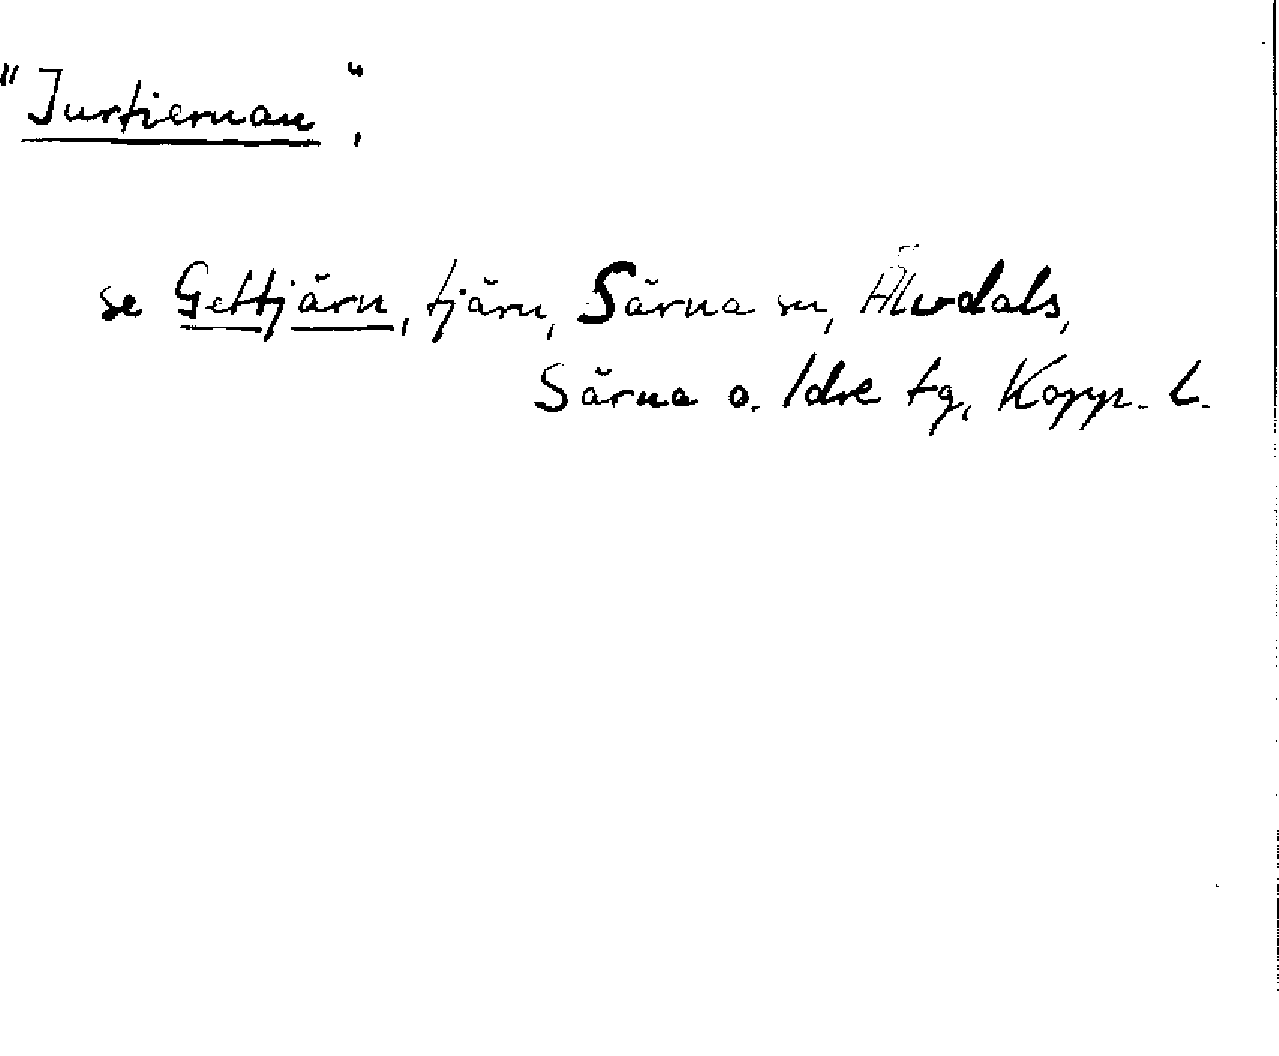 "Jurtiernan",
se Gettjärn, tjärn, Särna sn, Älvdals,
Särna o. Idre tg, Kopp. L.